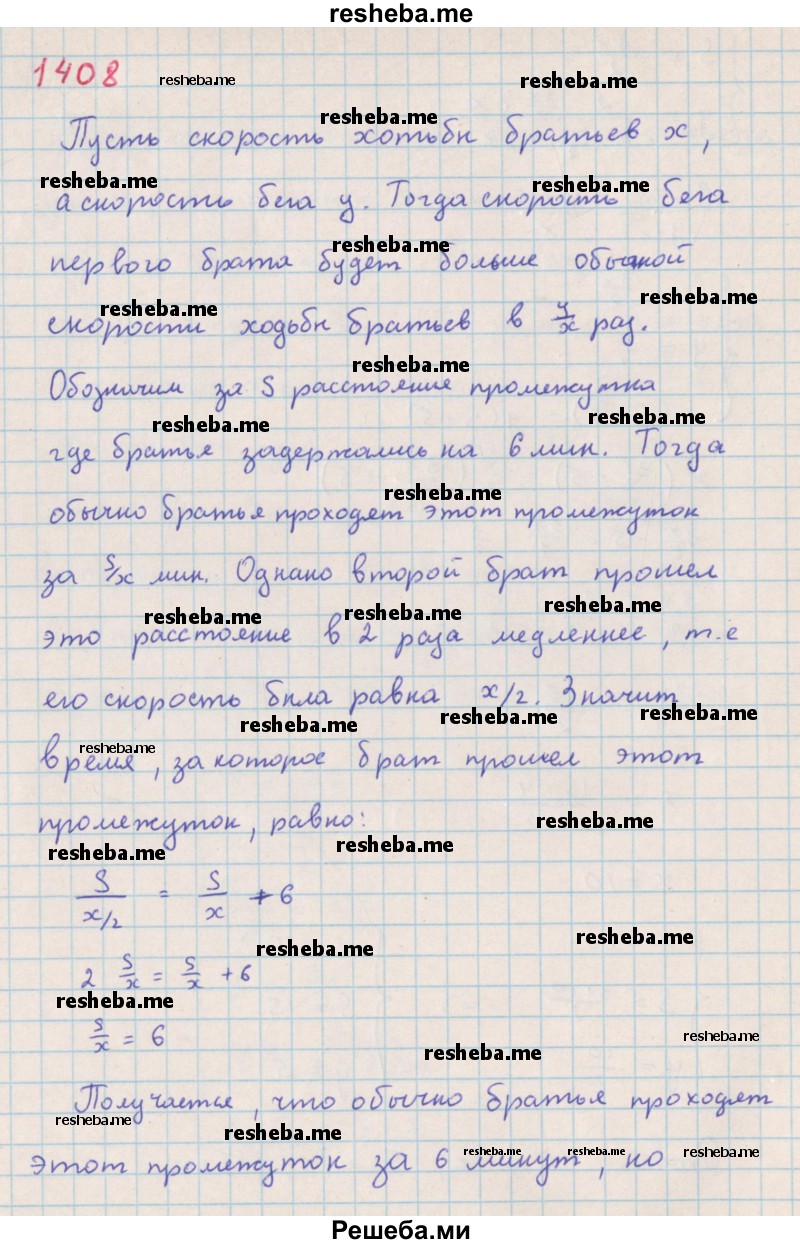 resheba.me
1408 resheba.me resheba.me
resheba.me
Пусть скорость хотьбы братьев x,
resheba.me resheba.me
а скорость бега y. Тогда скорость бега
resheba.me
первого брата будет больше обычной
resheba.me resheba.me
скорости ходьбы братьев в y/x раз.
resheba.me
Обозначим за S расстояние промежутка
resheba.me resheba.me
где братья задержались на 6 мин. Тогда
resheba.me
обычно братья проходят этот промежуток
за S/x мин. Однако второй брат прошел
resheba.me resheba.me resheba.me
это расстояние в 2 раза медленнее, т.е
его скорость была равна x/2. Значит
resheba.me resheba.me resheba.me
resheba.me
время, за которое брат прошел этот
промежуток, равно:
resheba.me resheba.me resheba.me
S/(x/2) = S/x + 6
resheba.me resheba.me
2 S/x = S/x + 6
resheba.me
S/x = 6
resheba.me resheba.me
Получается, что обычно братья проходят
resheba.me resheba.me
этот промежуток за 6 минут, но
resheba.me resheba.me resheba.me
Решеба.ми